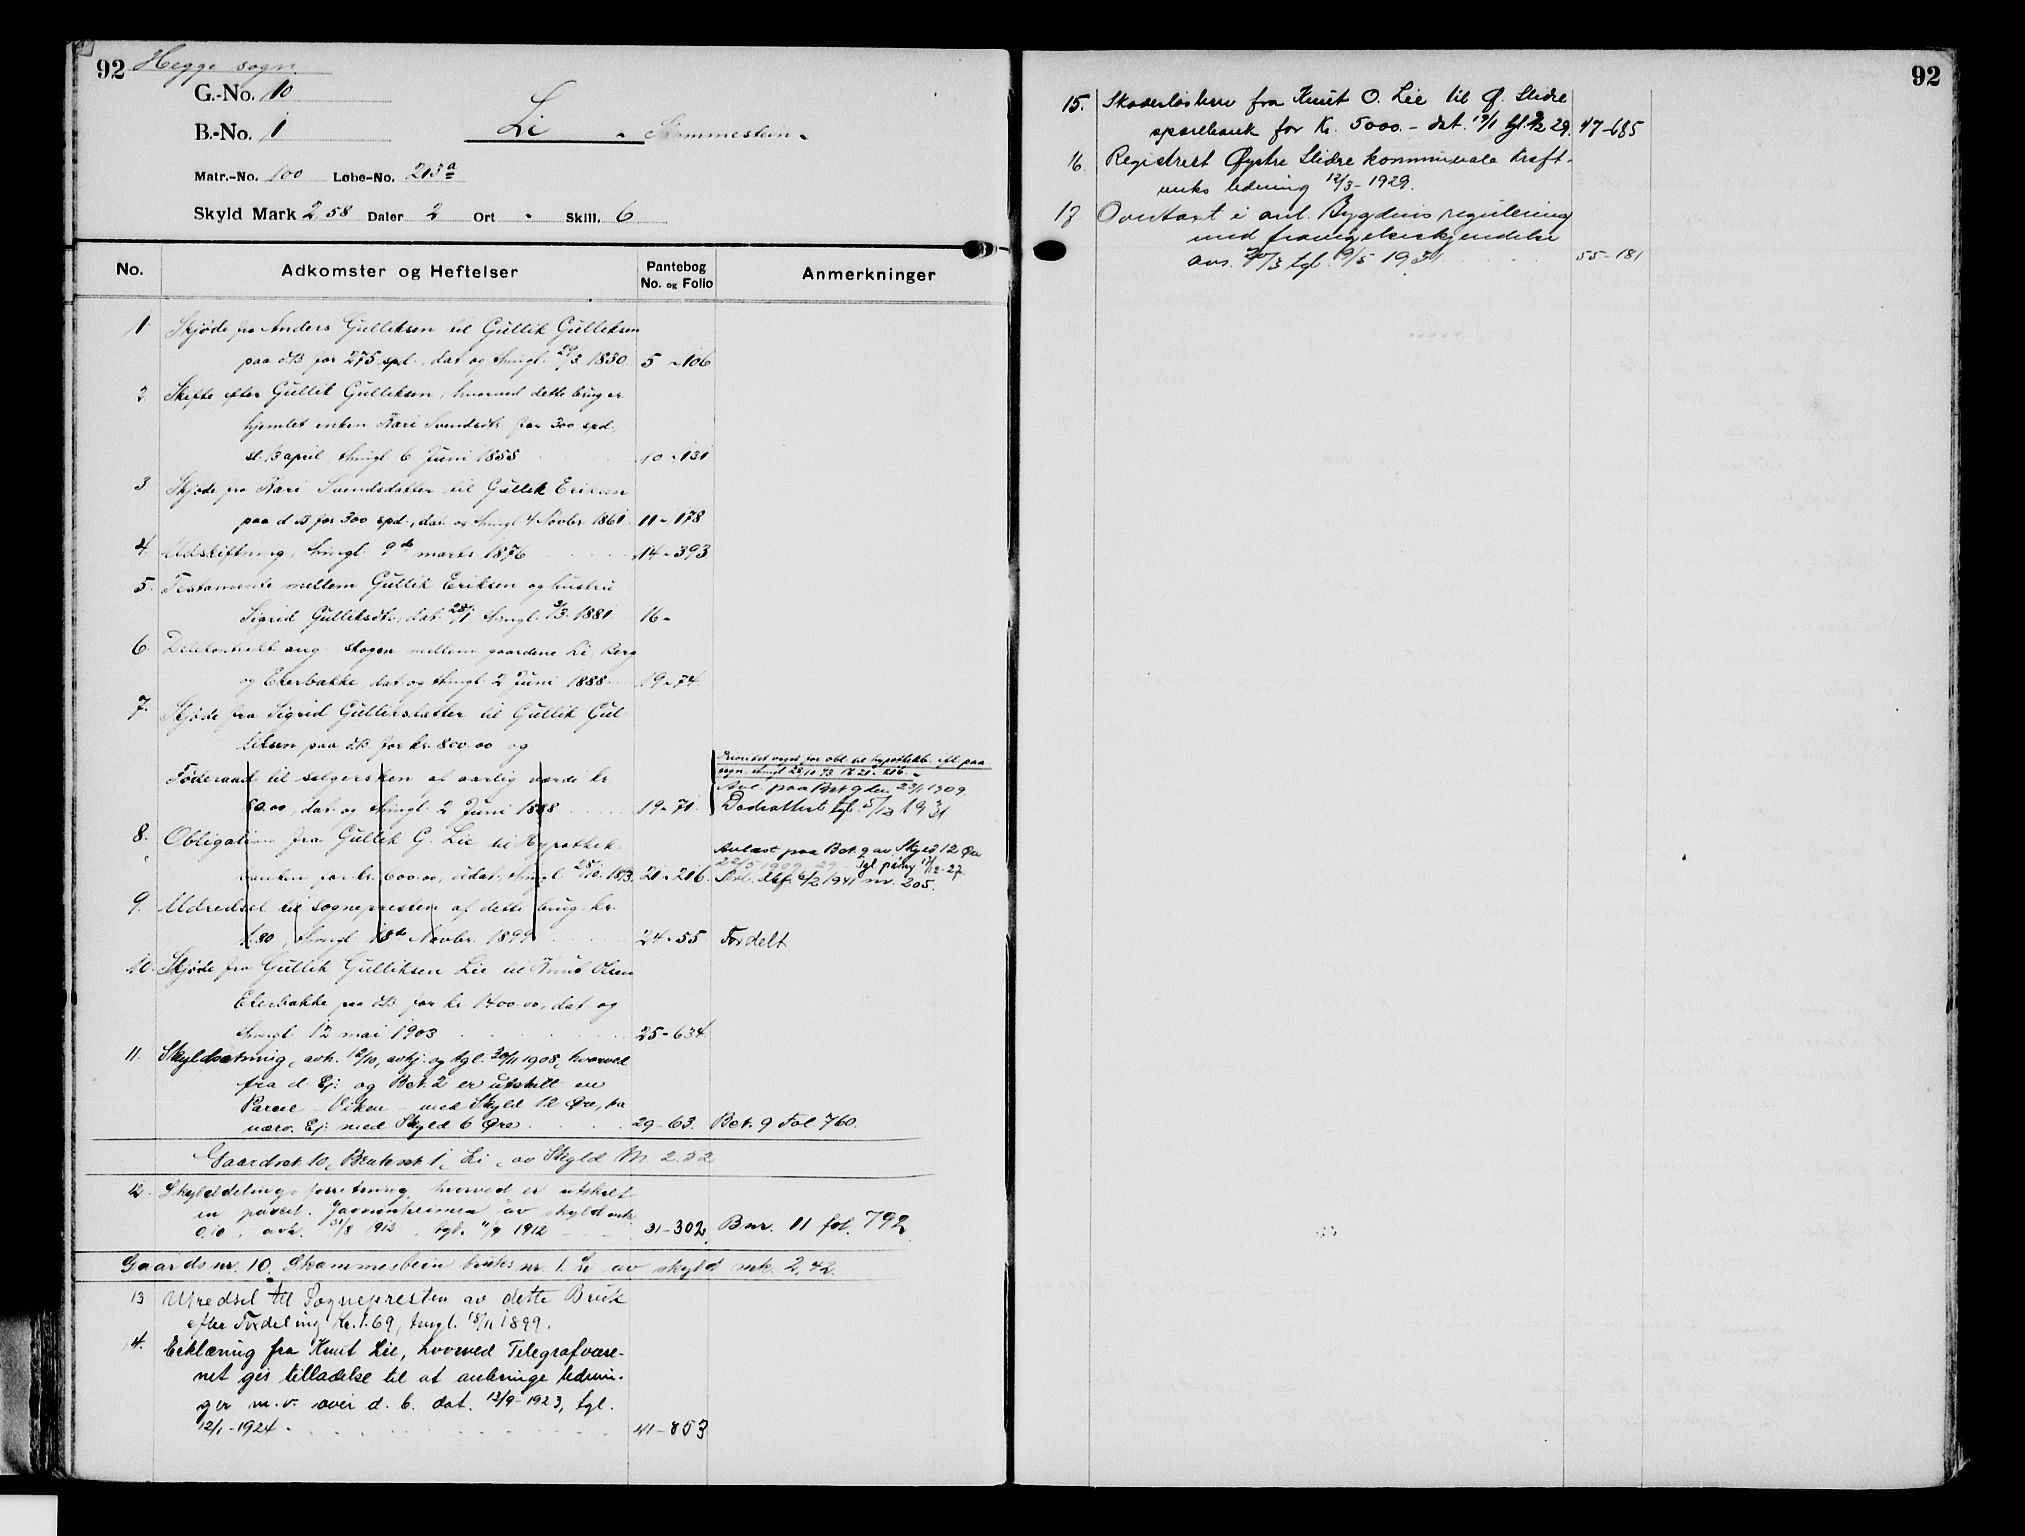 92 Hegge sogn.
G.-No. 10
B.-No. 1 Li "
Matr.-No. 100 Løbe-No. 213 a
Skyld Mark 2.58 Daler 2 Ort " Skill. 6
No. Adkomster og Heftelser Pantebog No. og Folio Anmerkninger
1. Skjøde fra Anders Gulliksen til Gullik Gulliksen
paa d.B. for 275 spd., dat. og thingl. 1830 5 - 106
2. Skifte efter Gullik Gulliksen, hvorved dette brug er
hjemlet enken Kari Svendsdtr. for 300 spd.,
sl. 13 april, thingl. 6 Juni 1855 10 - 131
3 Skjøde fra Kari Svendsdatter til Gullik Eriksen
paa d.B. for 300 spd., dat. og thingl. 4 Novbr. 1861 11 - 178
4. Udskiftning, thingl. 9de marts 1876 14 - 393
5. Testamente mellem Gullik Eriksen og hustru
Sigrid Gulliksdtr., dat. 28/1 thingl. 2/3 1881. 16 -
6. Delekontrakt ang. skogen mellem gaardene Li, Berg
og Ekerbakke, dat. og thingl. 2 Juni 1888 19 - 74.
7. Skjøde fra Sigrid Gulliksdatter til Gullik Gul-
liksen paa d.B. for kr. 800.00 og
Føderaad til selgersken af aarlig værdi kr.
80.00, dat. og thingl. 2 Juni 1888 19 - 71.
Avl. paa Bet 9 den 22/5 1909
Dødsattest tgl.
8. Obligation fra Gullik G. Lie til Hypothek-
banken for kr. 600.00, udst. thingl. 28/10. 1893. 21 - 216.
Avlæst paa Bet. 9 av Skyld 12 Øre
22/5 1909
Avl. 6/2 1941 nr. 205.
9. Udredsel til sognepresten af dette brug, kr.
1.80, thingl. 18de Novbr. 1899 24 - 55. Fordelt
10. Skjøde fra Gullik Gulliksen Lie til Knut Olsen
Ekerbakke paa d.B. for kr. 1400.00, dat. og
thingl. 12 mai 1903 25 - 634
11. Skyldsætning, avh. 12/10, avhj. og tgl. 30/11 1908, hvorved
fra d. Ej: og Bet. 2 er utskilt en
Parcel - Viken - med Skyld 12 Øre, fra
nærv. Ej: med Skyld 6 Øre 29 - 63. Bet. 9 Fol 760.
Gaardsnr. 10, Bruksnr. 1, Li, av Skyld M. 2.52
12. Skylddelingsforretning, hvorved er utskilt
en parcel av skyld mrk
0,10, avh. 31/8 1912, tgl. 11/9 1912 31 - 302. Bnr. 11 fol. 792.
Gaardsnr. 10. Skammestein bruksnr. 1. Li av skyld mk. 2,42.
13 Utredsel til Sognepresten av dette Bruk
efter Fordeling Kr. 1.69, tingl. 18/11 1899.
14. Erklæring fra Knut Lie, hvorved Telegrafvæse-
net gis tilladelse til at anbringe lednin-
ger m.v. over d. b. dat. 13/9 - 1923, tgl.
12/1 - 1924 41 - 853
92
15. Skadesløsbrev fra Knut O. Lie til Ø. Slidre
sparebank for Kr. 5000. - dat. 19/1 tgl. 29. 47 - 685
16. Registrert Øystre Slidre kommunale Kraft-
verks ledning 12/3 - 1929.
17 Overtaxt i anl. Bygdins regulering
med
avs. 20/3 tgl. 9/5 1931 55 - 181